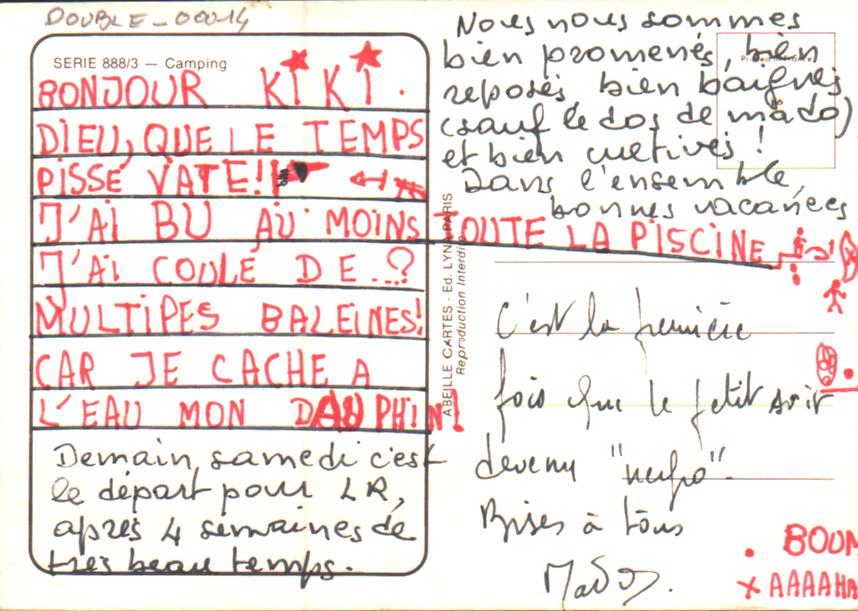 DOUBLE_00014
SERIE 888/3 — Camping
BONJOUR KIKI.
DIEU, QUE LE TEMPS
PISSE VATE!!
J'AI BU AU MOINS TOUTE LA PISCINE
J'AI COULÉ DE..?
MULTIPES BALEINES!
CAR JE CACHE A
L'EAU MON DAUPHIN!
Demain, samedi c'est
le départ pour LR,
après 4 semaines de
très beau temps.
ABEILLE CARTES - Ed. LYNA PARIS
Reproduction Interdite
Nous nous sommes
bien promenés, bien
reposés bien baignés
(sauf le dos de mado)
et bien cultivés!
Dans l'ensemble,
bonnes vacances
C'est la première
fois que le petit
devenu
Bises à tous
Mado.
. BOUM
x AAAAHA